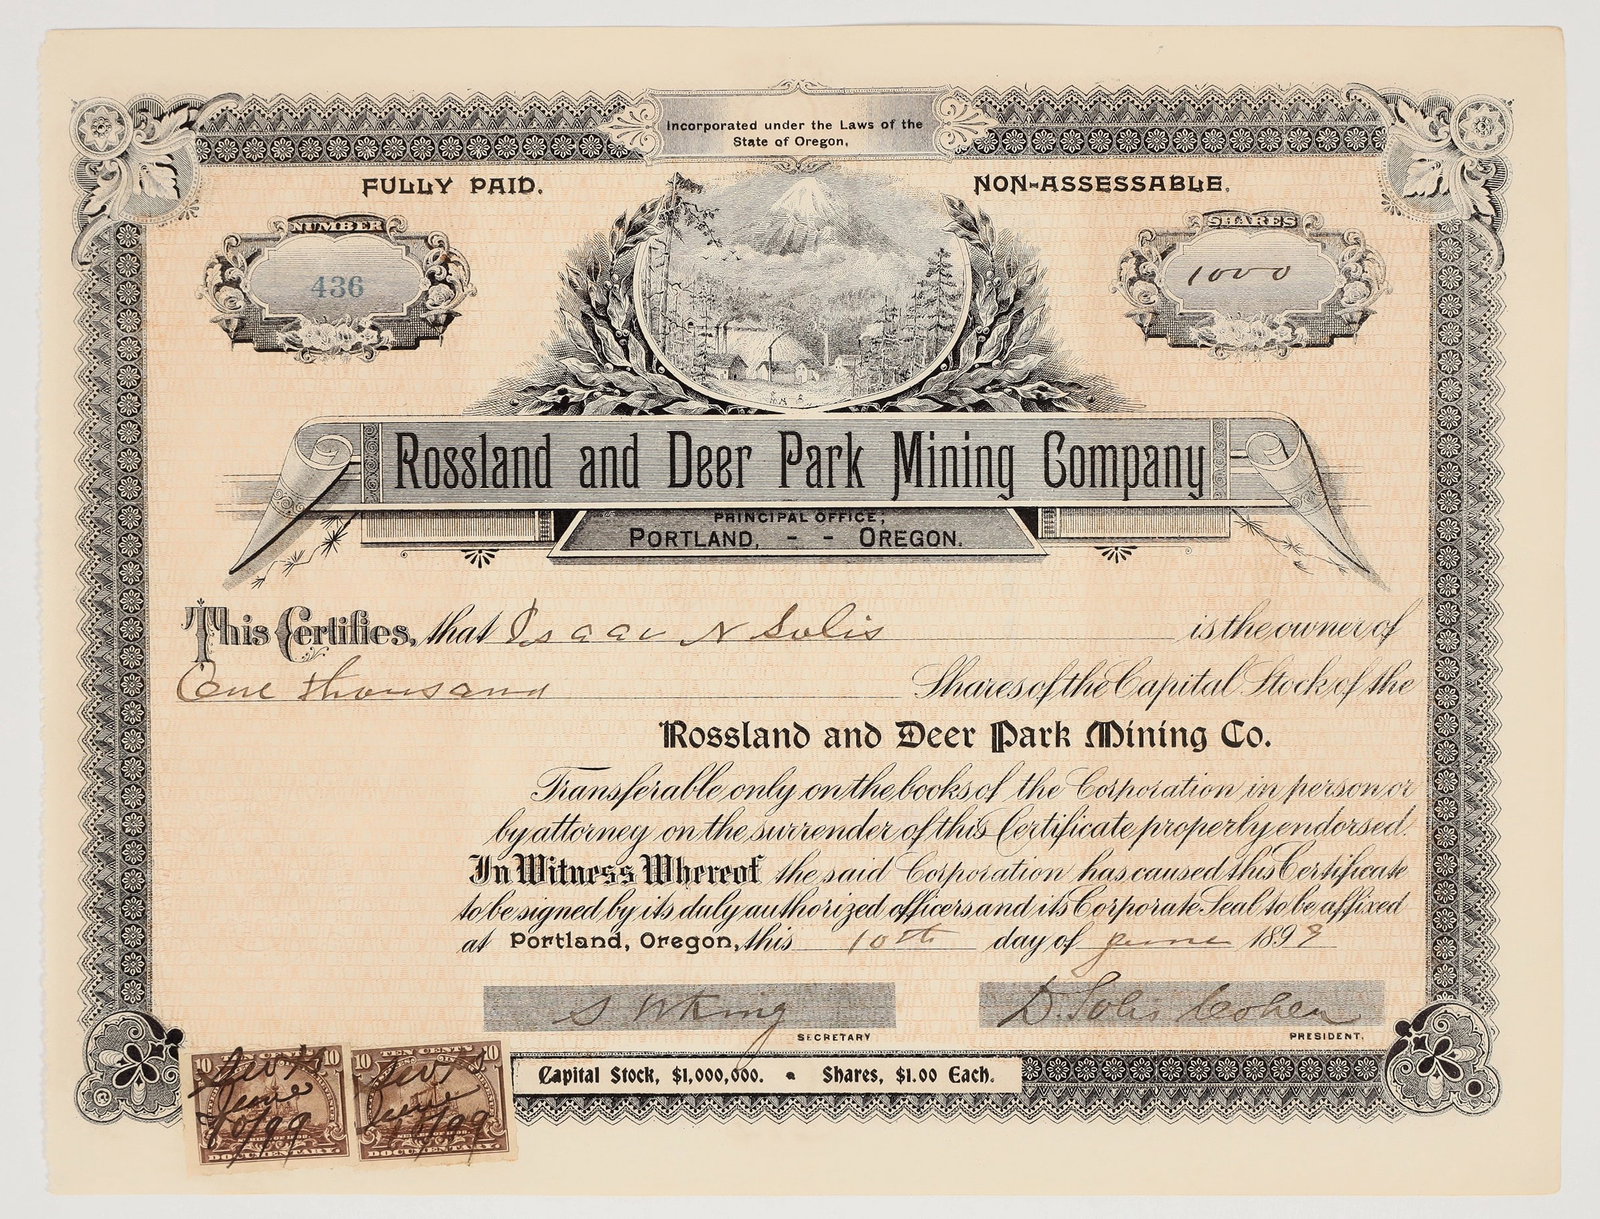 Incorporated under the Laws of the
State of Oregon.
FULLY PAID.
NON-ASSESSABLE.
NUMBER
436
SHARES
1000
Rossland and Deer Park Mining Company
PRINCIPAL OFFICE;
PORTLAND, - - OREGON.
This Certifies, that Isaac N Solis is the owner of
One thousand Shares of the Capital Stock of the
Rossland and Deer Park Mining Co.
Transferable only on the books of the Corporation in person or
by attorney on the surrender of this Certificate properly endorsed.
In Witness Whereof the said Corporation has caused this Certificate
to be signed by its duly authorized officers and its Corporate Seal to be affixed
at Portland, Oregon, this 10th day of June 1899
S W King
SECRETARY
D. Solis Cohen
PRESIDENT.
Capital Stock, $1,000,000. Shares, $1.00 Each.
10 10
June
10/99
DOCUMENTARY
10 TEN CENTS 10
June
10/99
DOCUMENTARY